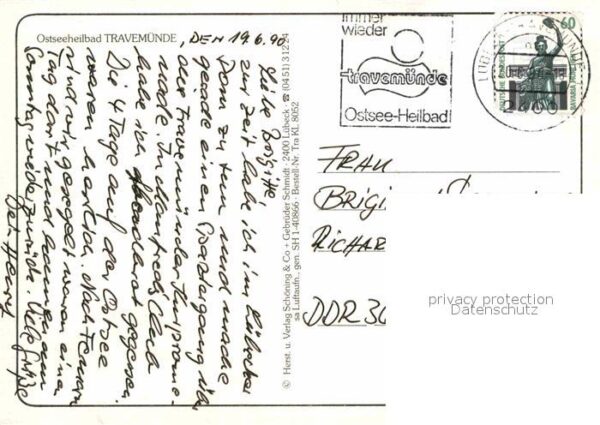 Ostseeheilbad TRAVEMÜNDE
, DEN 19.6.90
Liebe Brigitte,
zur Zeit habe ich in Lübecker
Dom zu tun und mache
gerade einen Spaziergang über
der Travemünder Tunprome-
nade. In Manfreds Club
habe ich gegessen.
Die 4 Tage auf der Ostsee
waren herrlich. Nach
sind wir gesegelt waren einen
Tag dort und kommen am
Sonntag wieder zurück. Viele Grüße
Dein
© Herst. u. Verlag Schöning & Co + Gebrüder Schmidt · 2400 Lübeck · ☎ (0451) 31224
sa Luftaufn., gen. SH 1-40866 · Bestell-Nr. Tra KL 8052
immer
wieder
travemünde
Ostsee-Heilbad
60
2400
FRAU
BRIGI
RICHAR
DDR 30
privacy protection
Datenschutz